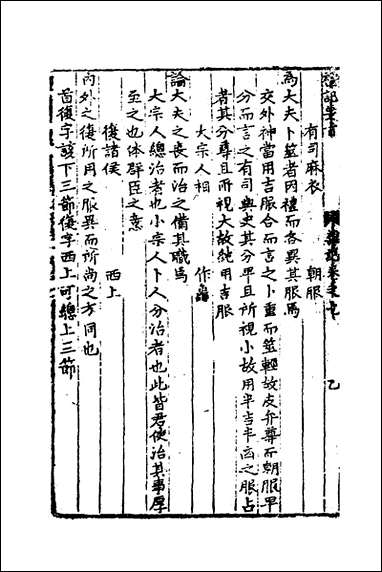 有司麻衣　朝服
為大夫卜筮者因禮而各異其服焉
交外神當用吉服合而言之卜重而筮輕故皮弁尊而朝服卑
分而言之有司與史其分卑且所視小故用半吉半凶之服占
者其分尊且所視大故純用吉服
大宗人相　作龜
論大夫之喪而治之備其職焉
大宗人總治者也小宗人卜人分治者也此皆君使治其事厚
至之也体群臣之意
復諸侯　西上
內外之復所用之服異而所尚之方同也
首復字該下三節復字西上可總上三節